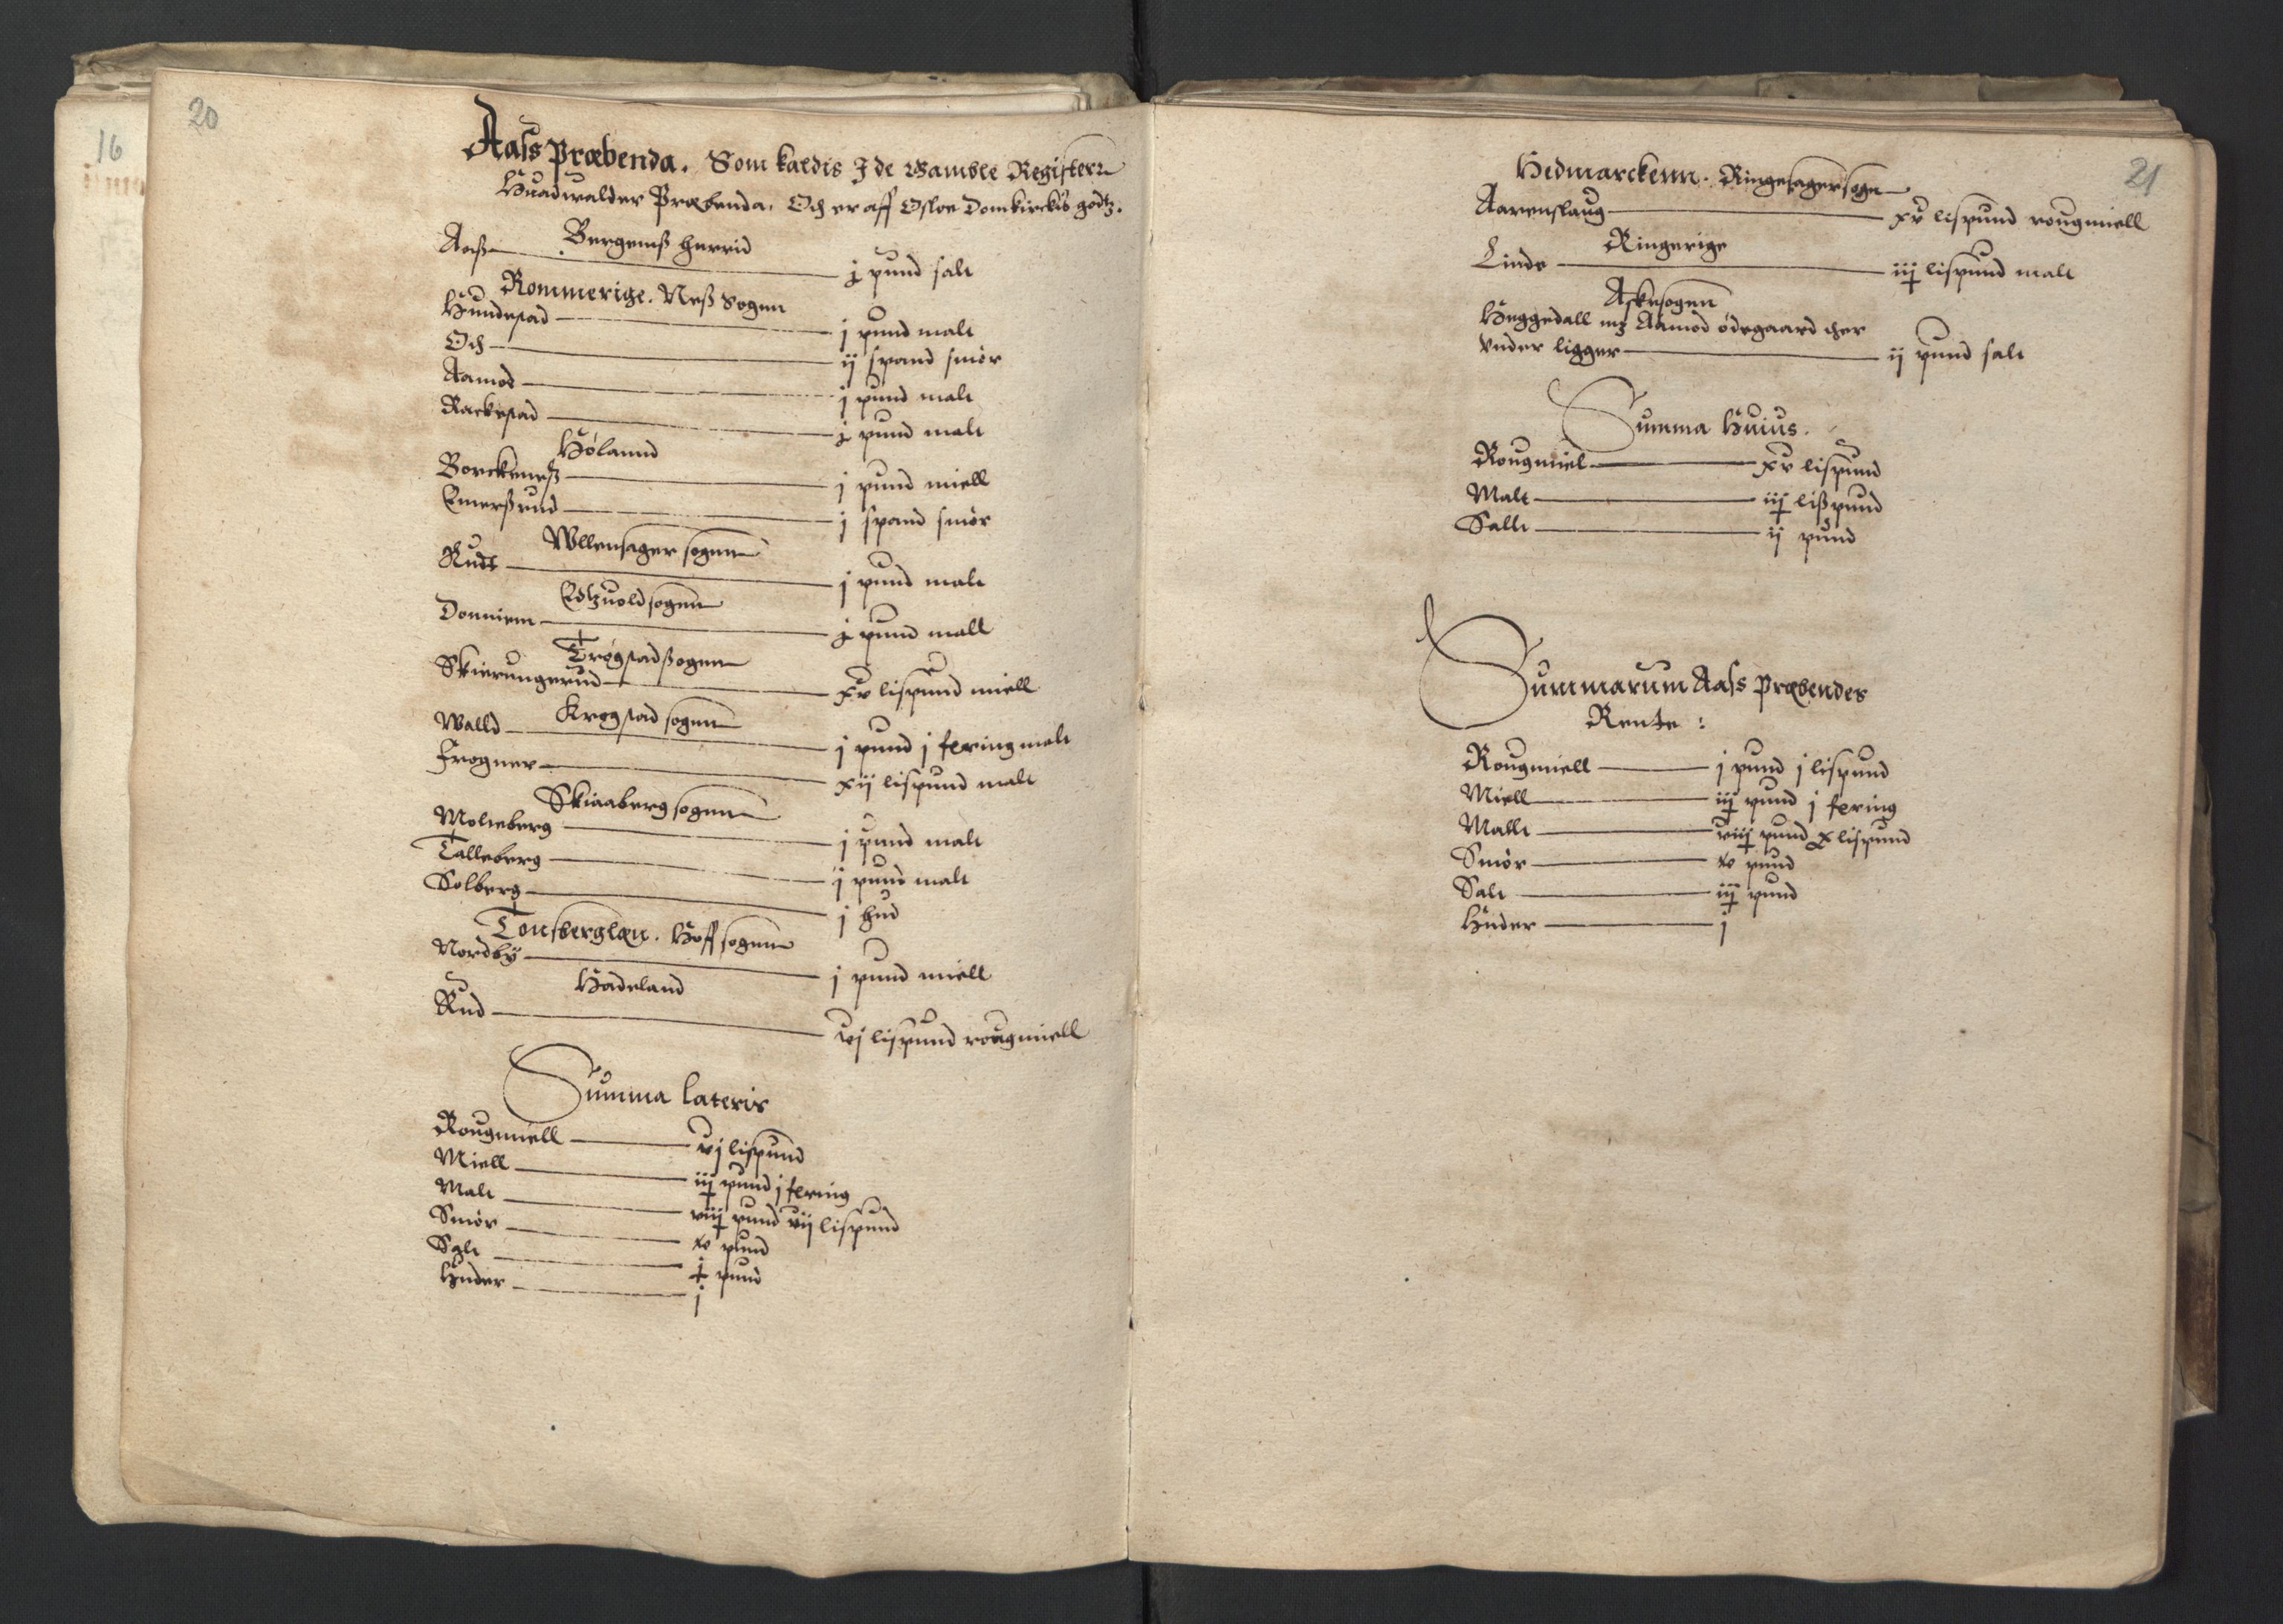 16
20
Aass Præbenda. Som kaldis J de Gamble Registere
Huadualder Præbenda. Och er aff Osloe Domkirckis godtz.
Bergemß herrid
Aaß j pund salt
Rommerige. Neß Sogen
Hundestad j pund malt
Och ij spand smør
Aamod j pund malt
Rackestad j pund malt
Hølannd
Borckeneß j pund miell
Emerßrud j spand smør
Wllensager sogenn
Rudt j pund malt
Edtzuold sogenn
Donniem j pund malt
Trøgstad ßogenn
Skierungerud xv lispund miell
Krogstad sogenn
Walld j pund j fering malt
Frogner xij lispund malt
Skiaaberg sogenn
Molteberg j pund malt
Talleberg j pund malt
Solberg j hud
Tonsberglæn. Hoff sogenn
Nordby j pund miell
Hadeland
Rud vj lispund rougmiell
Summa lateris
Rougmiell vj lispund
Miell iij pund j fering
Malt viij pund vij lispund
Smør pund
Salt j pund
Huder j
21
Hedmarckenn. Ringesager sogn
Aarenslaug xv lispund rougmiell
Ringerige
Linde iij lispund malt
Askesogen
Heggedall mz Aamod ødegaard ther
vnder ligger ij pund salt
Summa Huius.
Rougmiel xv lispund
Malt iij lißpund
Sallt ij pund
Summarum Aass Præbendes
Rente:
Rougmiell j pund j lispund
Miell iij pund j fering
Mallt viij pund x lispund
Smør pund
Salt iij pund
Huder j